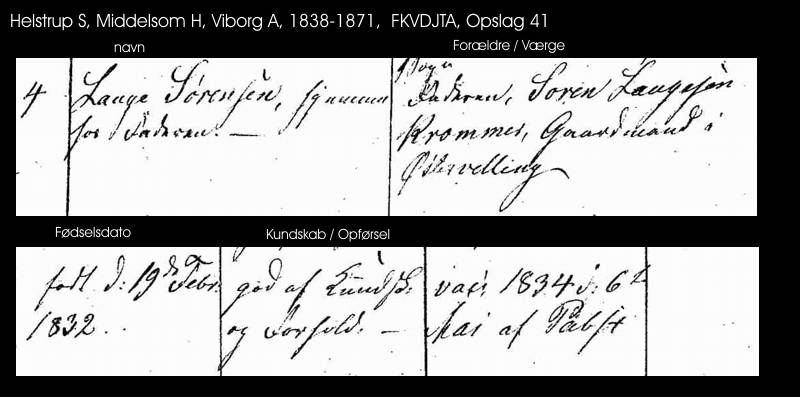 Helstrup S, Middelsom H, Viborg A, 1838-1871, FKVDJTA, Opslag 41
navn
Forældre / Værge
4
Lauge Sørensen, hjemme
hos Faderen. —
Faderen, Søren Laugesen
Krommes, Gaardmand i
Østervelling
Fødselsdato
Kundskab / Opførsel
født d: 19de Febr.
1832.
god af Kundsk:
og Forhold. —
vac: 1834 d: 6t
Mai af Pabst